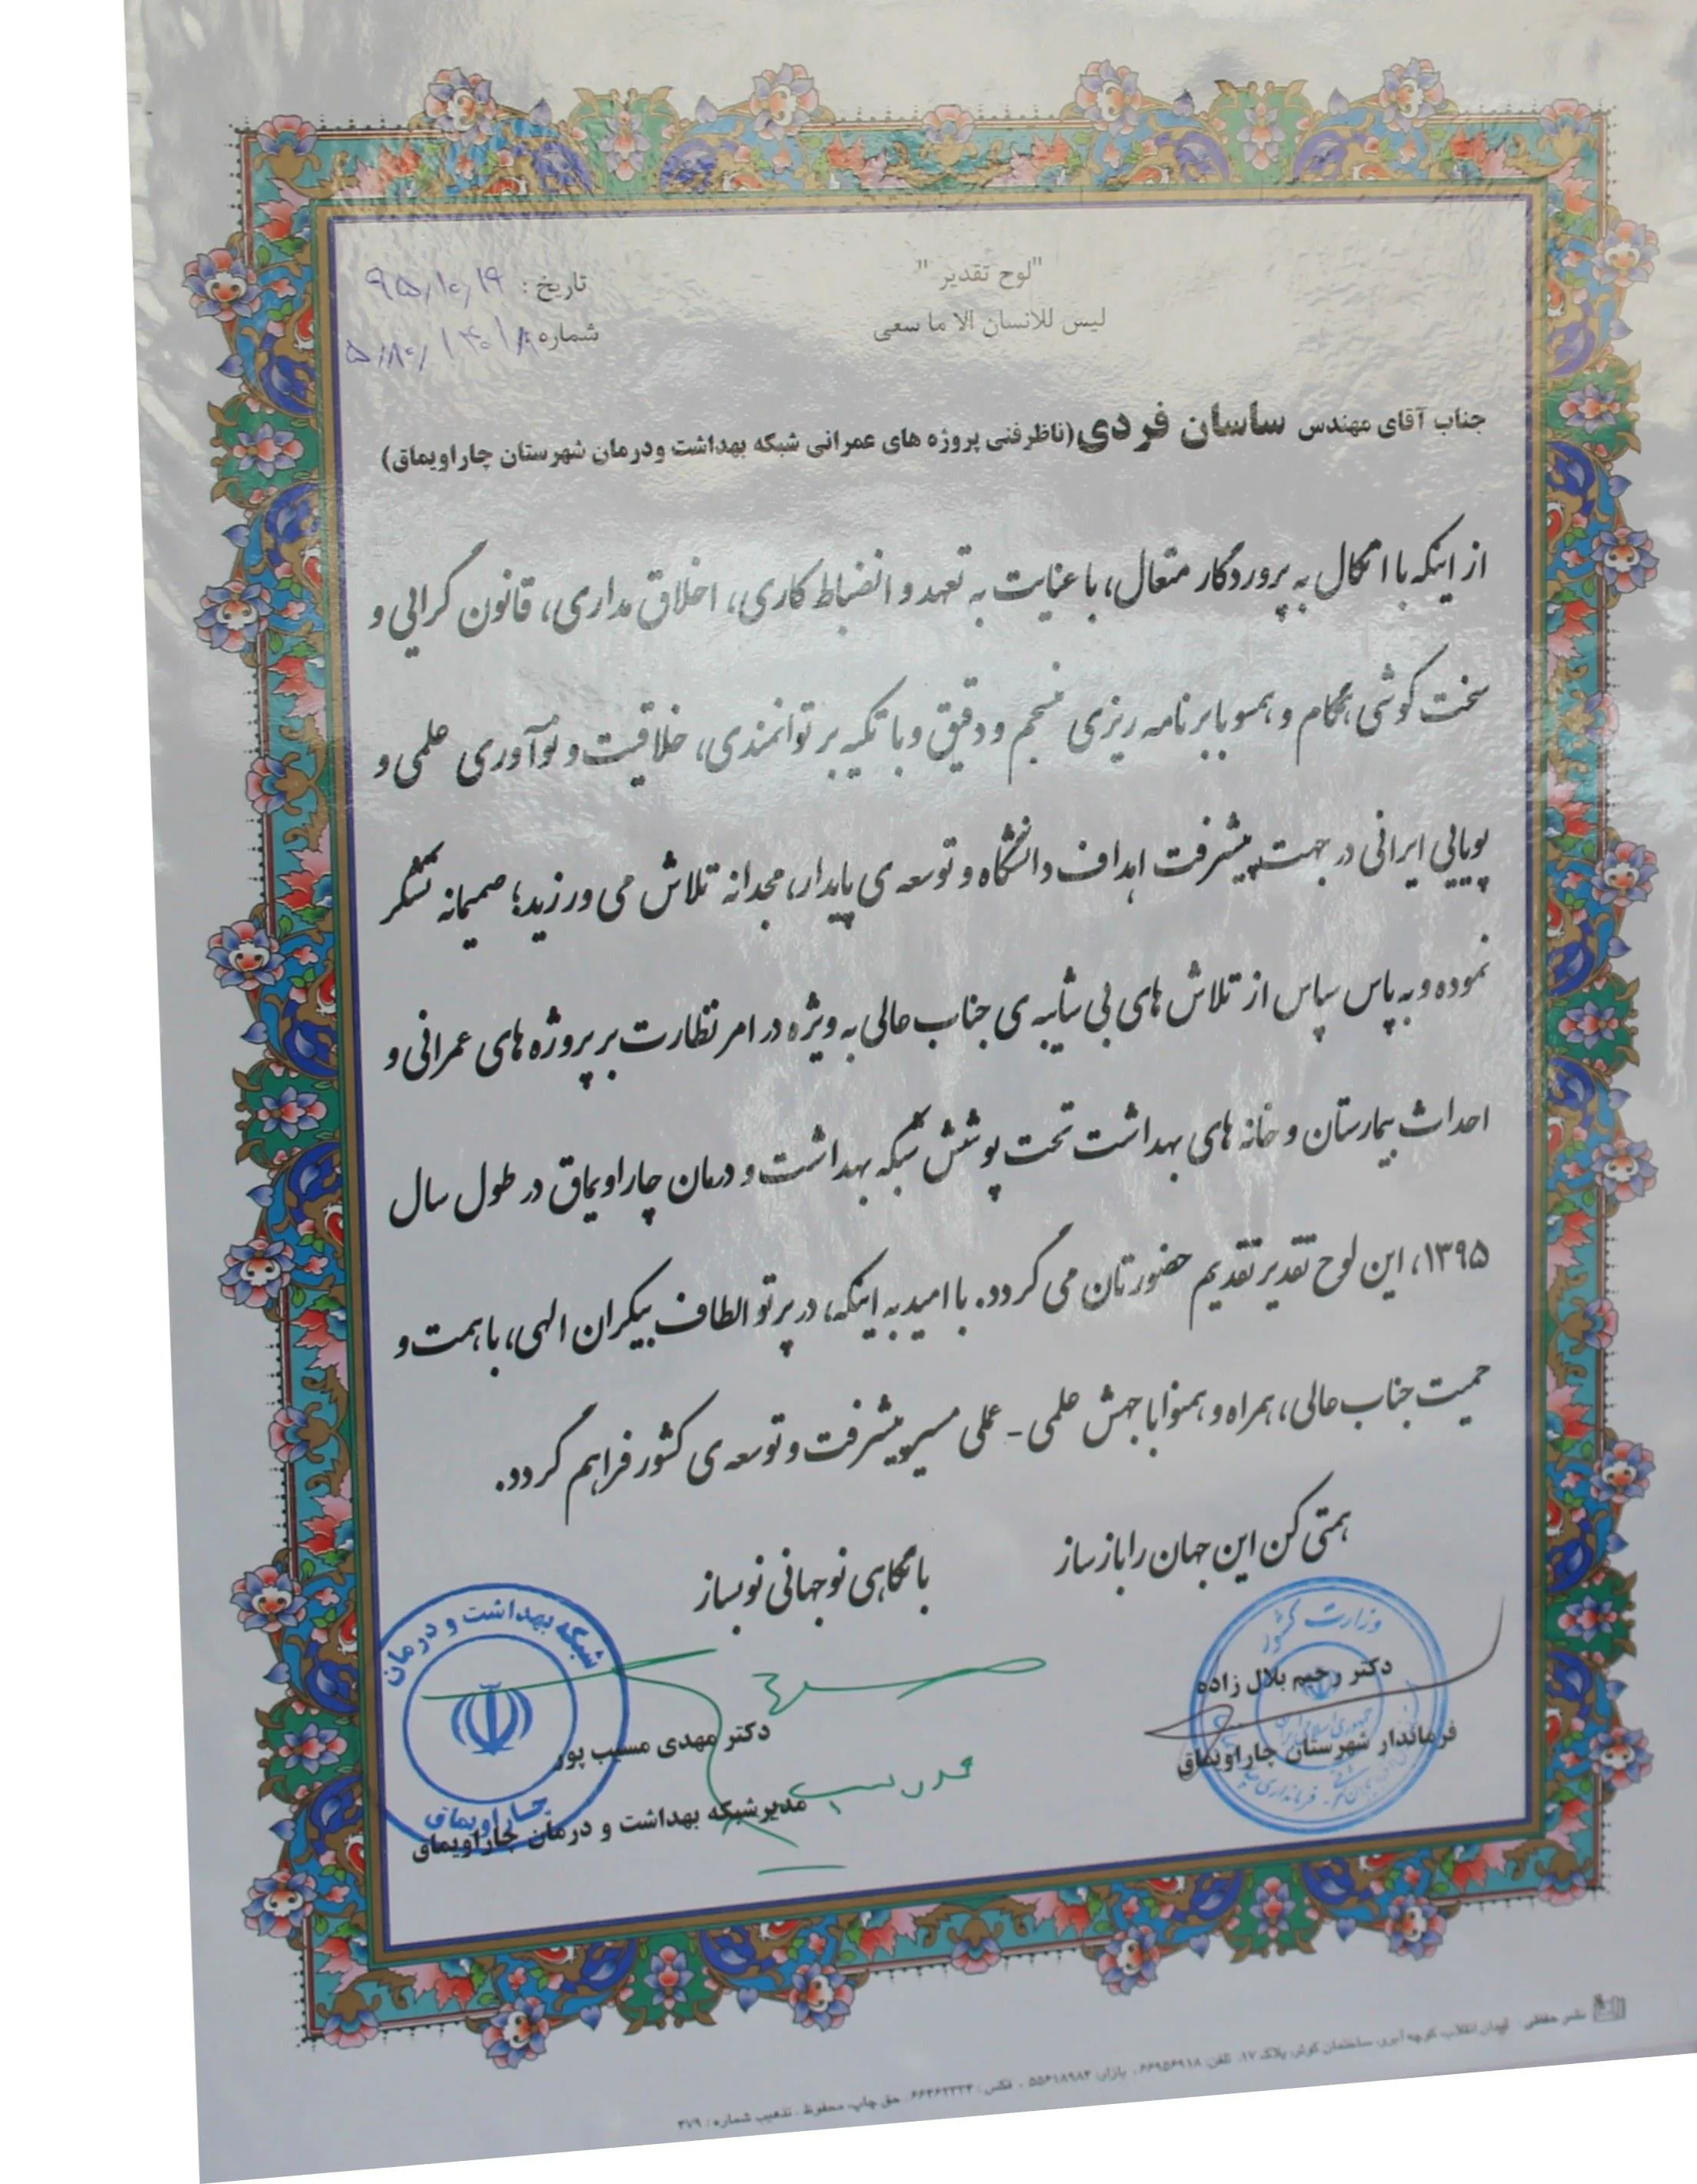 "لوح تقدیر "
لیس للانسان الا ما سعی
تاریخ : ۹۵/۱۰/۱۹
شماره :
جناب آقای مهندس ساسان فردی(ناظرفنی پروژه های عمرانی شبکه بهداشت ودرمان شهرستان چاراویماق)
از اینکه با اتکال به پروردگار متعال، با عنایت به تعهد و انضباط کاری، اخلاق مداری، قانون گرایی و
سخت کوشی، همگام و همسو با برنامه ریزی منسجم و دقیق و با تکیه بر توانمندی، خلاقیت و نوآوری علمی و
پویایی ایرانی در جهت پیشرفت اهداف دانشگاه و توسعه ی پایدار، مجدانه تلاش می ورزید؛ صمیمانه تشکر
نموده و به پاس سپاس از تلاش های بی شائبه ی جناب عالی به ویژه در امر نظارت بر پروژه های عمرانی و
احداث بیمارستان و خانه های بهداشت تحت پوشش شبکه بهداشت و درمان چاراویماق در طول سال
۱۳۹۵، این لوح تقدیر تقدیم حضورتان می گردد. با امید به اینکه، در پرتو الطاف بیکران الهی، با همت و
حمیت جناب عالی، همراه و همنوا با جهش علمی - عملی مسیر پیشرفت و توسعه ی کشور فراهم گردد.
همتی کن این جهان را باز ساز
با نگاهی نو جهانی نو بساز
وزارت کشور
دکتر رحیم بلال زاده
فرماندار شهرستان چاراویماق
شبکه بهداشت و درمان
چاراویماق
دکتر مهدی مسیب پور
مدیرشبکه بهداشت و درمان چاراویماق
نشر حقیقی : میدان انقلاب، کوچه
ساختمان کوثر، پلاک ۱۷، تلفن: ۶۶۹۵۶۹۱۸، بازار: ۵۵۶۱۸۹۸۳ ، فکس :
حق چاپ محفوظ ، تذهیب شماره : ۳۷۹